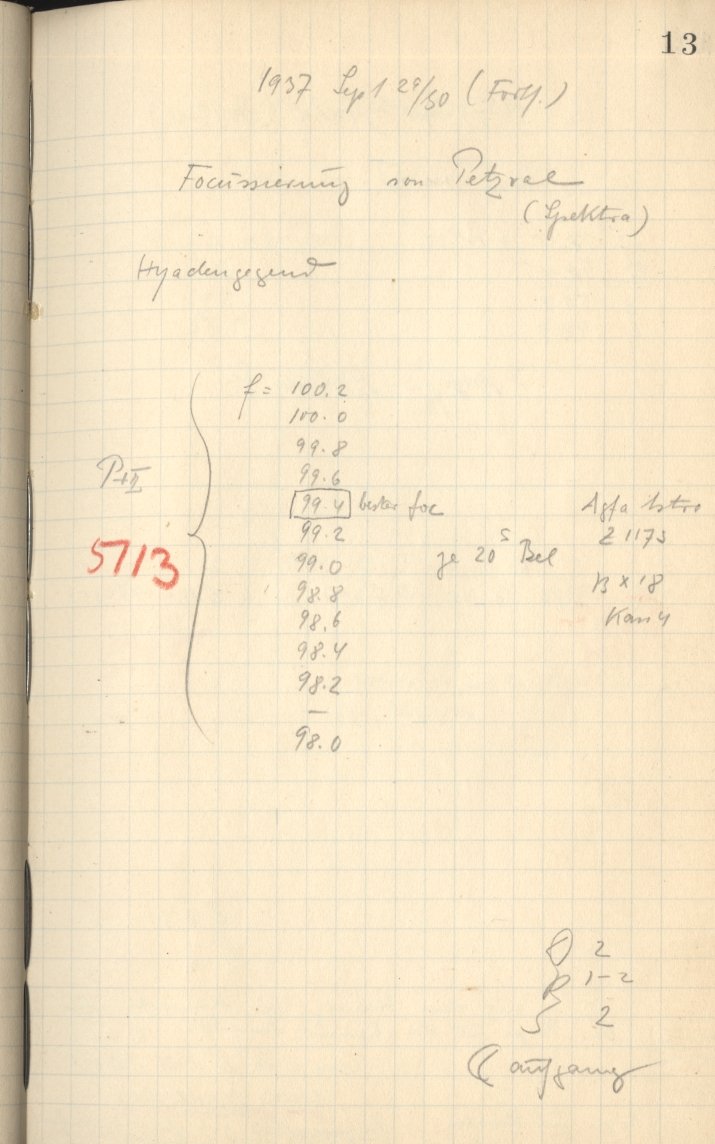 13
1937 Sept 29/30 (Forts.)
Focussierung von Petzval
(Spektra)
Hyadengegend
f = 100.2
100.0
99.8
99.6
99.4 bester foc
99.2
99.0
98.8
98.6
98.4
98.2
–
98.0
P II
5713
je 20ˢ Bel
Agfa Astro
Z 1173
13 x 18
Kass 4
2
1–2
2
☾ aufgang